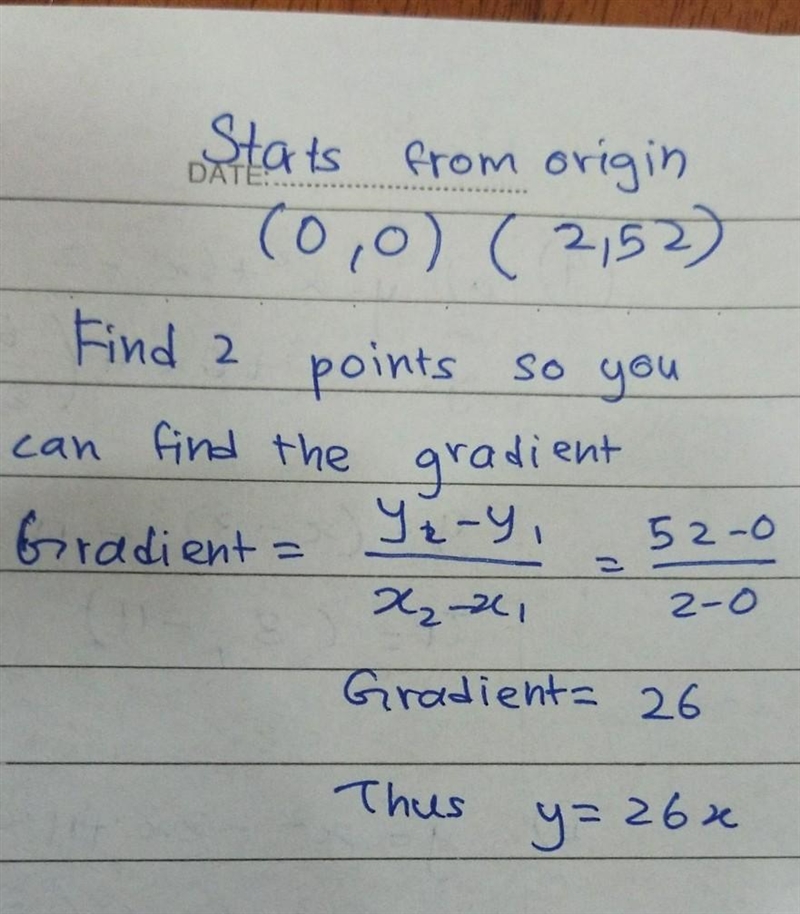 Stats from origin
DATE:
(0,0) (2,52)
Find 2 points so you
can find the gradient
Gradient = y₂-y₁ / x₂-x₁ = 52-0 / 2-0
Gradient = 26
Thus y = 26x